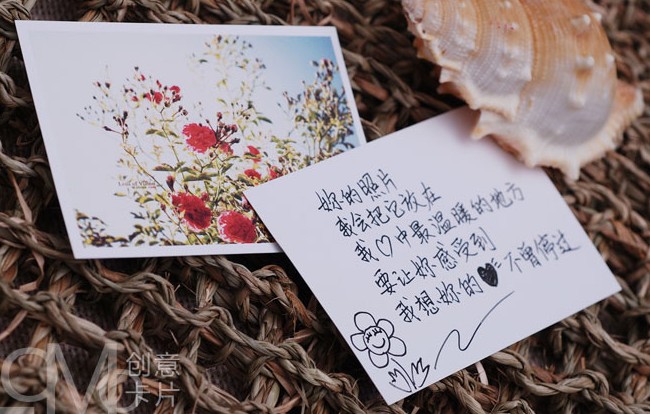 妳的照片
我会把它放在
我♡中最温暖的地方
要让妳感受到
我想妳的♥不曾停过
创意
卡片